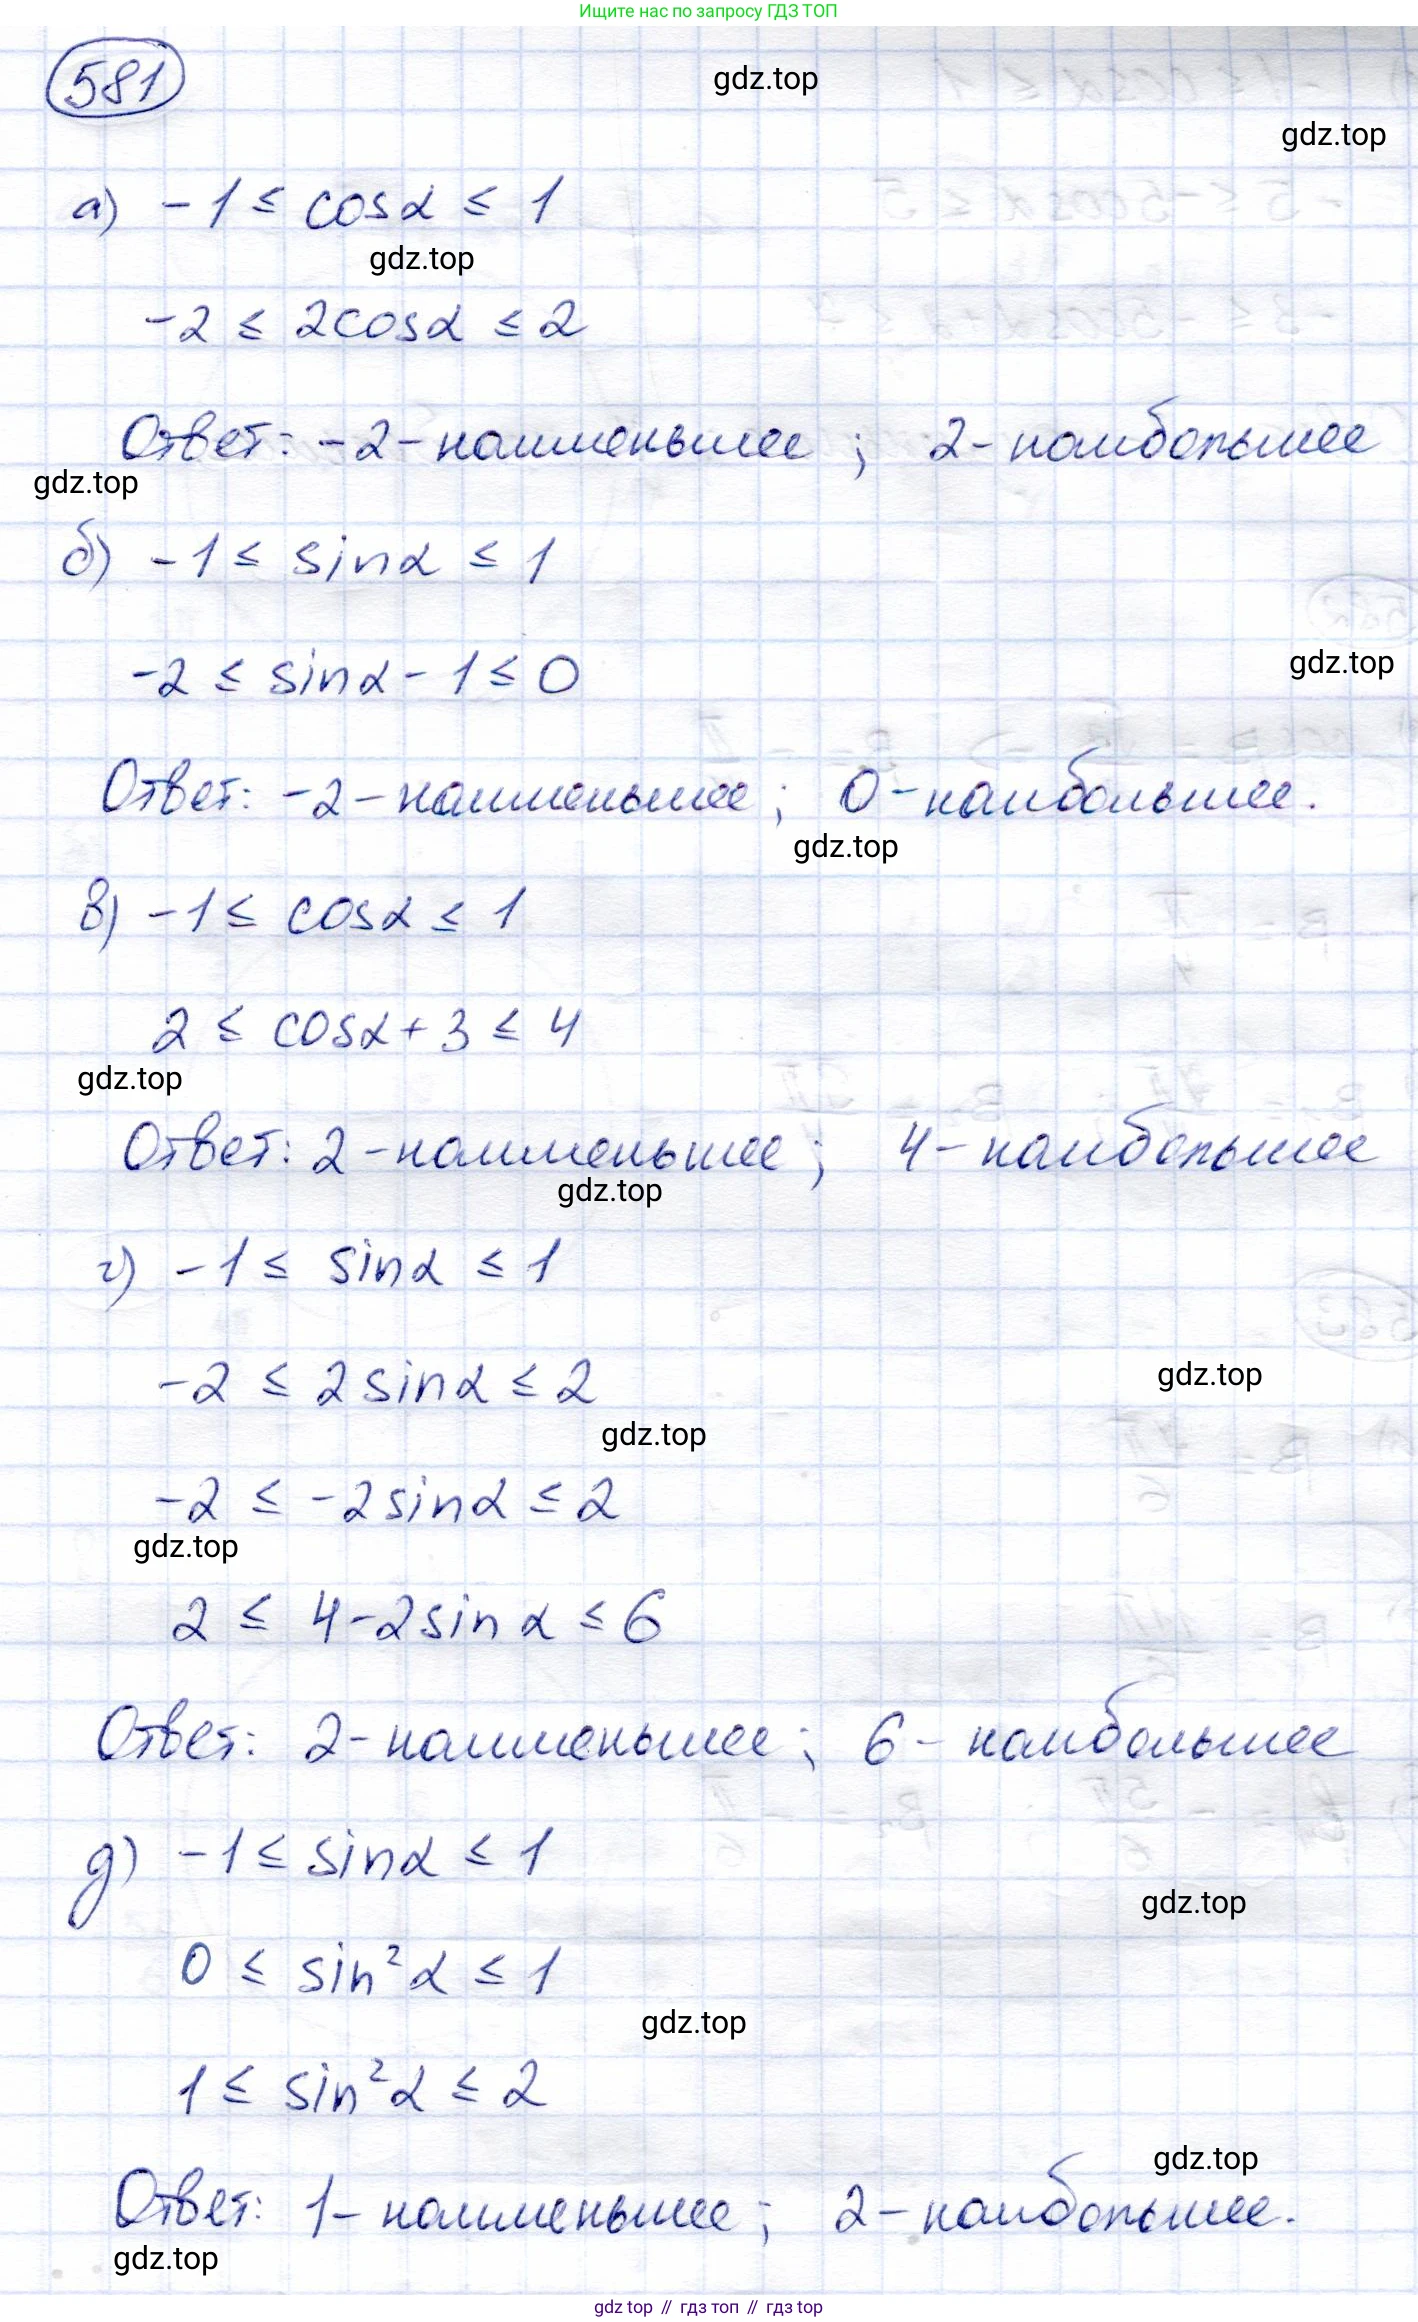 Ищите нас по запросу ГДЗ ТОП
581
gdz.top
gdz.top
а) -1 ≤ cosα ≤ 1
gdz.top
-2 ≤ 2cosα ≤ 2
Ответ: -2 - наименьшее ; 2 - наибольшее
gdz.top
б) -1 ≤ sinα ≤ 1
-2 ≤ sinα - 1 ≤ 0
gdz.top
Ответ: -2 - наименьшее ; 0 - наибольшее.
gdz.top
в) -1 ≤ cosα ≤ 1
2 ≤ cosα + 3 ≤ 4
gdz.top
Ответ: 2 - наименьшее ; 4 - наибольшее
gdz.top
г) -1 ≤ sinα ≤ 1
-2 ≤ 2sinα ≤ 2
gdz.top
gdz.top
-2 ≤ -2sinα ≤ 2
gdz.top
2 ≤ 4 - 2sinα ≤ 6
Ответ: 2 - наименьшее ; 6 - наибольшее
д) -1 ≤ sinα ≤ 1
gdz.top
0 ≤ sin²α ≤ 1
gdz.top
1 ≤ sin²α ≤ 2
gdz.top
Ответ: 1 - наименьшее ; 2 - наибольшее.
gdz.top
gdz top // гдз топ // gdz top